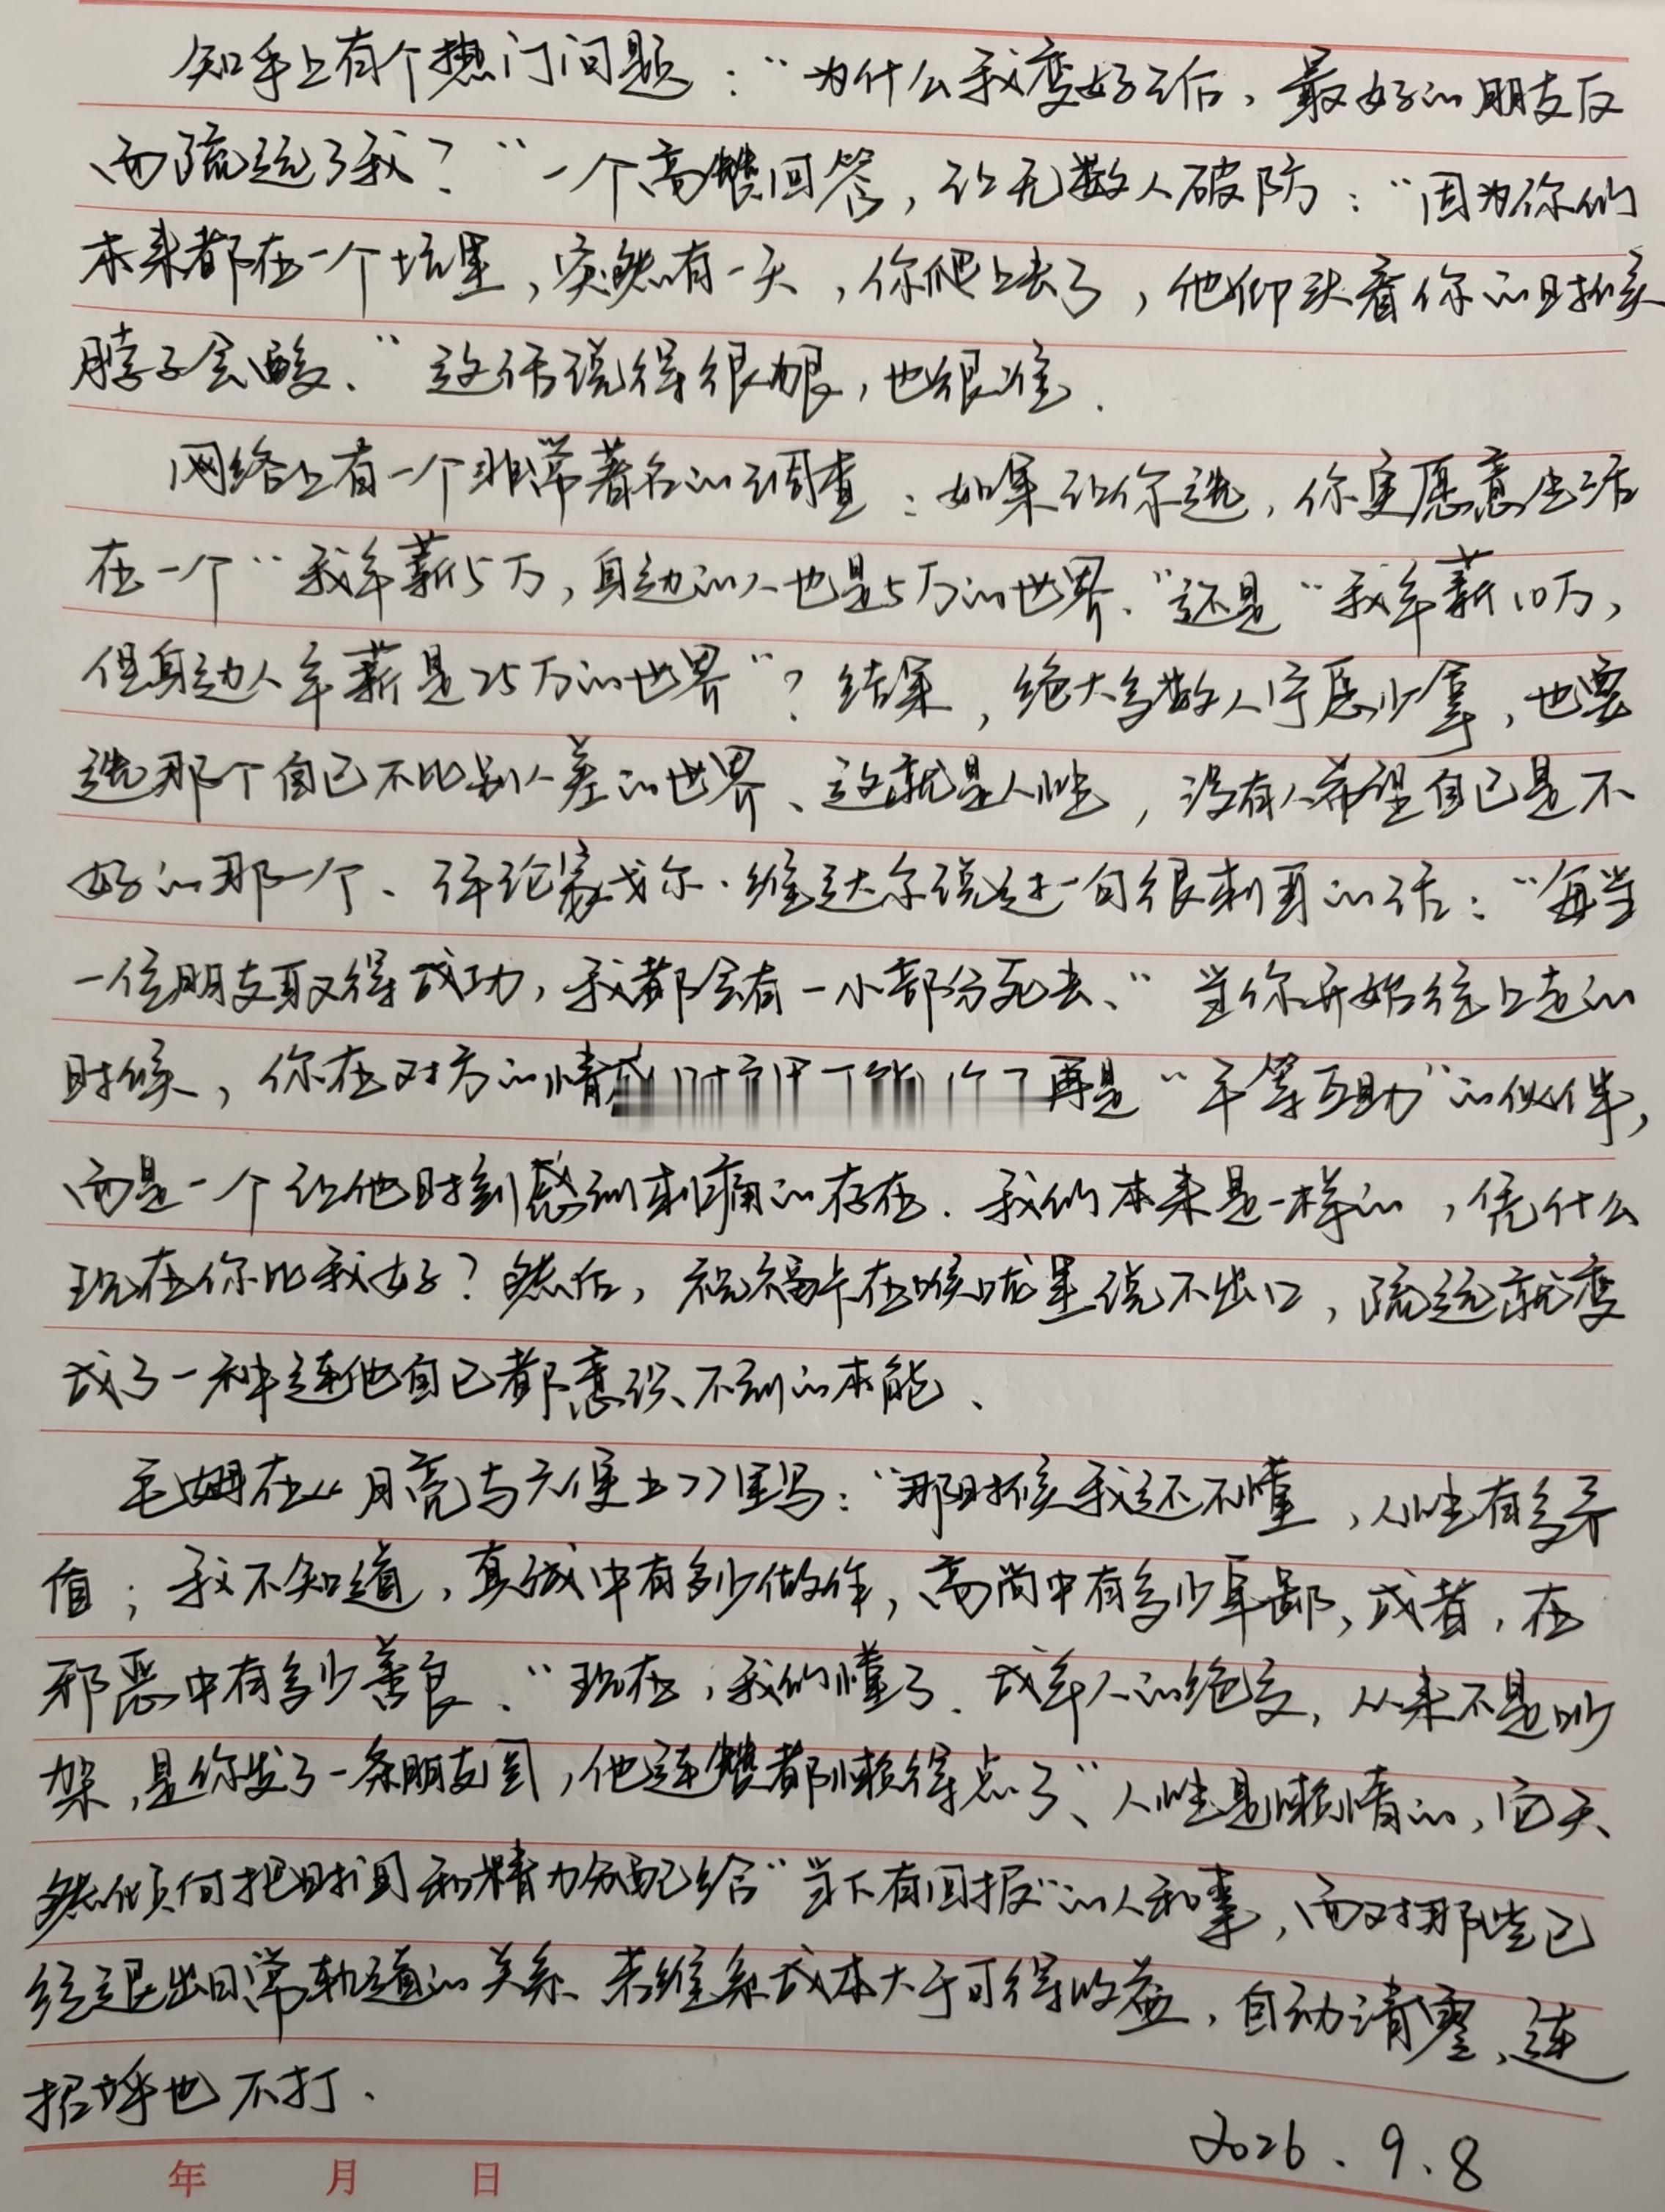 知乎上有个热门问题：“为什么我变好之后、最好的朋友反
而疏远了我？”一个高赞回答，让无数人破防：“因为你们
本来都在一个坑里，突然有一天，你爬上去了，他仰头看你的时候
脖子会酸、”这话说得很狠，也很准.
网络上有一个非常著名的调查：如果让你选，你更愿意生活
在一个“我年薪5万，身边的人也是5万的世界、”还是“我年薪10万，
但身边人年薪是25万的世界”？结果，绝大多数人宁愿少拿，也要
选那个自己不比别人差的世界、这就是人性，没有人希望自己是不
好的那一个、评论家戈尔·维达尔说过一句很刺耳的话：“每当
一位朋友取得成功，我都会有一小部分死去、”当你开始往上走的
时候，你在对方的情 再是“平等互助”的伙伴，
而是一个让他时刻感到刺痛的存在.我们本来是一样的，凭什么
现在你比我好？然后，祝福卡在喉咙里说不出口，疏远就变
成了一种连他自己都意识不到的本能、
毛姆在《月亮与六便士》里写：“那时候我还不懂，人性有多矛
盾；我不知道，真诚中有多少做作，高尚中有多少卑鄙，或者，在
邪恶中有多少善良、”现在，我们懂了.成年人的绝交，从来不是吵
架，是你发了一条朋友圈，他连赞都懒得点了、人性是懒惰的，它天
然倾向把时间和精力分配给“当下有回报”的人和事，而对那些已
经退出日常轨道的关系、若维系成本大于可得收益，自动清零、连
招呼也不打、
2026.9.8
年 月 日